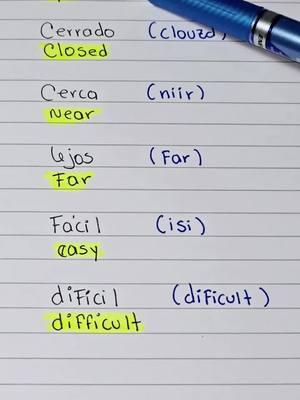 Cerrado (clouzd)
Closed
Cerca (niir)
Near
Lejos (Far)
Far
Fácil (isi)
easy
diFícil (diFicult)
difficult